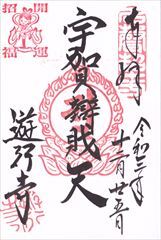 奉拝
令和三年
十二月廿五日
宇賀辯財天
開運
招福
遊行寺